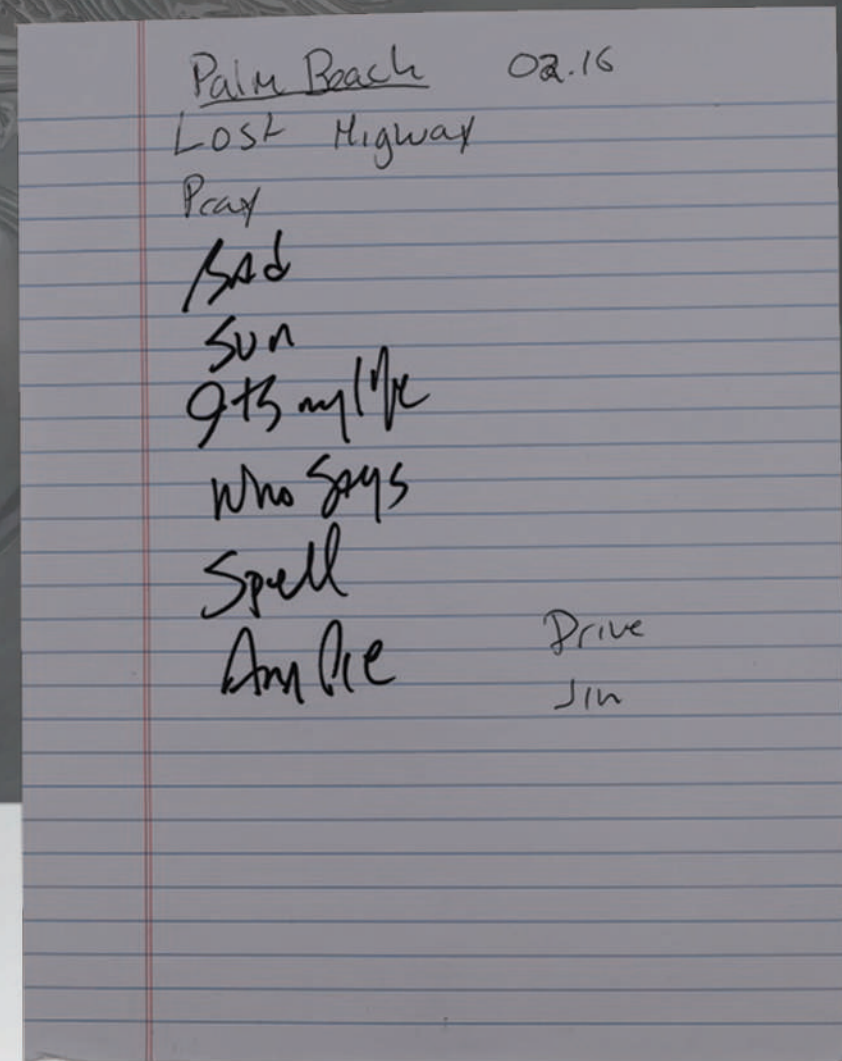 Palm Beach 02.16
Lost Higway
Pray
Bad
Sun
9t5 my life
Who Says
Spell
Am Pie
Drive
Jin